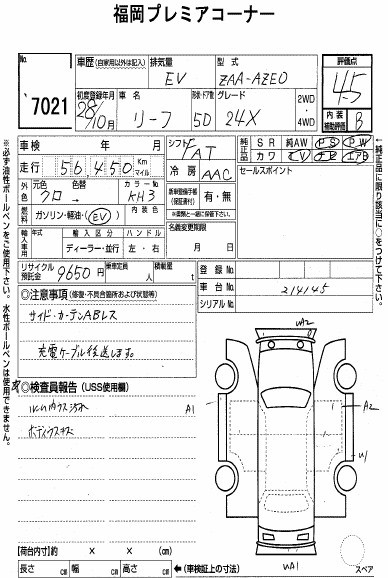 福岡プレミアコーナー
No.
7021
車歴 (自家用以外は記入) 排気量 型式
EV ZAA-AZE0
評価点
4.5
内装
補助評価 B
初度登録年月 車名 形状・ドア数 グレード
28年 10月 リーフ 5D 24X
2WD・4WD
車検 年 月
シフト
FAT
純正品 SR 純AW PS PW
カワ TV ナビ エアB
走行 56,450 Km マイル
冷房 AAC
セールスポイント
外色 元色 色替 カラーNo.
クロ → KH3
新車登録手帳(保証書付) 有・無
※書類と一緒に保管下さい。
燃料 ガソリン・軽油・(EV) 内装色
名義変更期限
月 日
輸入車用 年式 輸入区分 ハンドル
ディーラー・並行 左・右
リサイクル預託金 9650円 乗車定員 人 積載量 t
登録No.
車台No. 214145
シリアルNo.
◎注意事項 (修復・不具合箇所および状態等)
サイド・カーテンABレス
充電ケーブル後送します。
◎検査員報告 (USS使用欄)
ルーム内ウス汚れ A1
ボディウスキズ
UA2
A2
U1
UA1
スペア
[荷台内寸]約 × × (cm)
長さ cm 幅 cm 高さ cm ←(車検証上の寸法)
※必ず油性ボールペンをご使用下さい。水性ボールペンは使用できません。
←純正品に限り該当に○をつけて下さい。